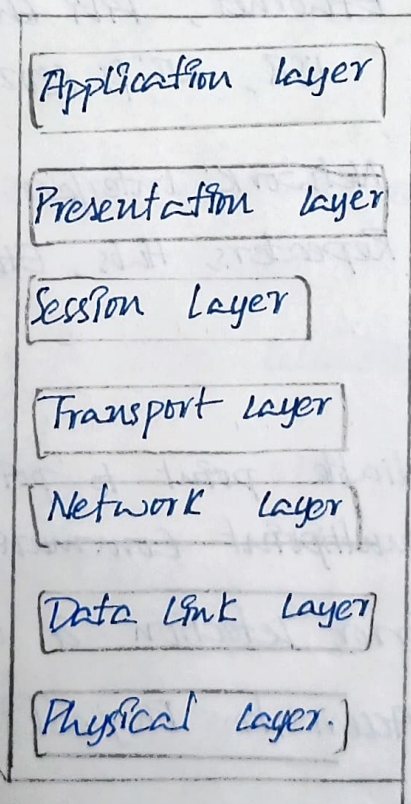 Application Layer
Presentation Layer
Session Layer
Transport Layer
Network Layer
Data Link Layer
Physical Layer.